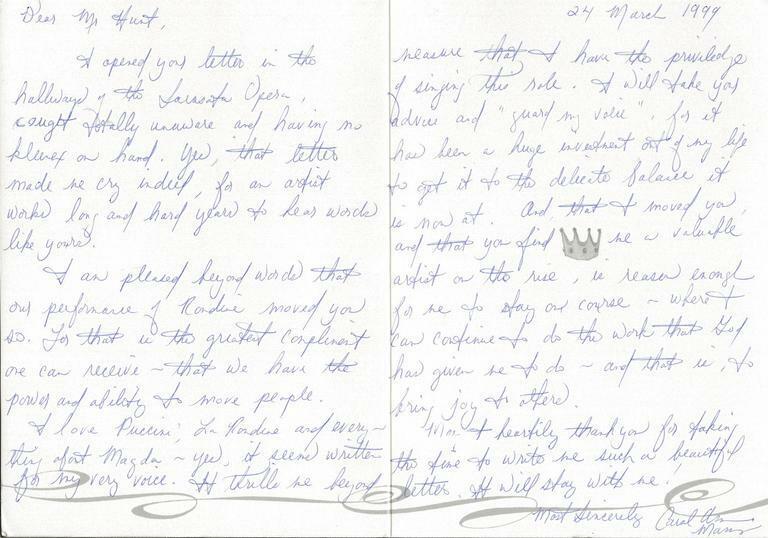 Dear Mr Hunt,
I opened your letter in the
hallways of the Sarasota Opera,
caught totally unaware and having no
kleenex on hand. Yes, that letter
made me cry indeed, for an artist
works long and hard years to hear words
like yours.
I am pleased beyond words that
our performance of Rondine moved you
so. For that is the greatest compliment
one can receive ~ that we have the
power and ability to move people.
I love Puccini, La Rondine and every-
thing about Magda ~ yes, it seems written
for my very voice. It thrills me beyond
24 March 1999
measure that I have the priviledge
of singing this role. I will take your
advice and "guard my voice", for it
has been a huge investment out of my life
to get it to the delicate balance it
is now at. And that I moved you,
and that you find me a valuable
artist on the rise, is reason enough
for me to stay on course ~ where I
can continue to do the work that God
has given me to do ~ and that is, to
bring joy to others.
Most heartily thank you for taking
the time to write me such a beautiful
letter. It will stay with me!
Most Sincerely Carol Ann
Manz